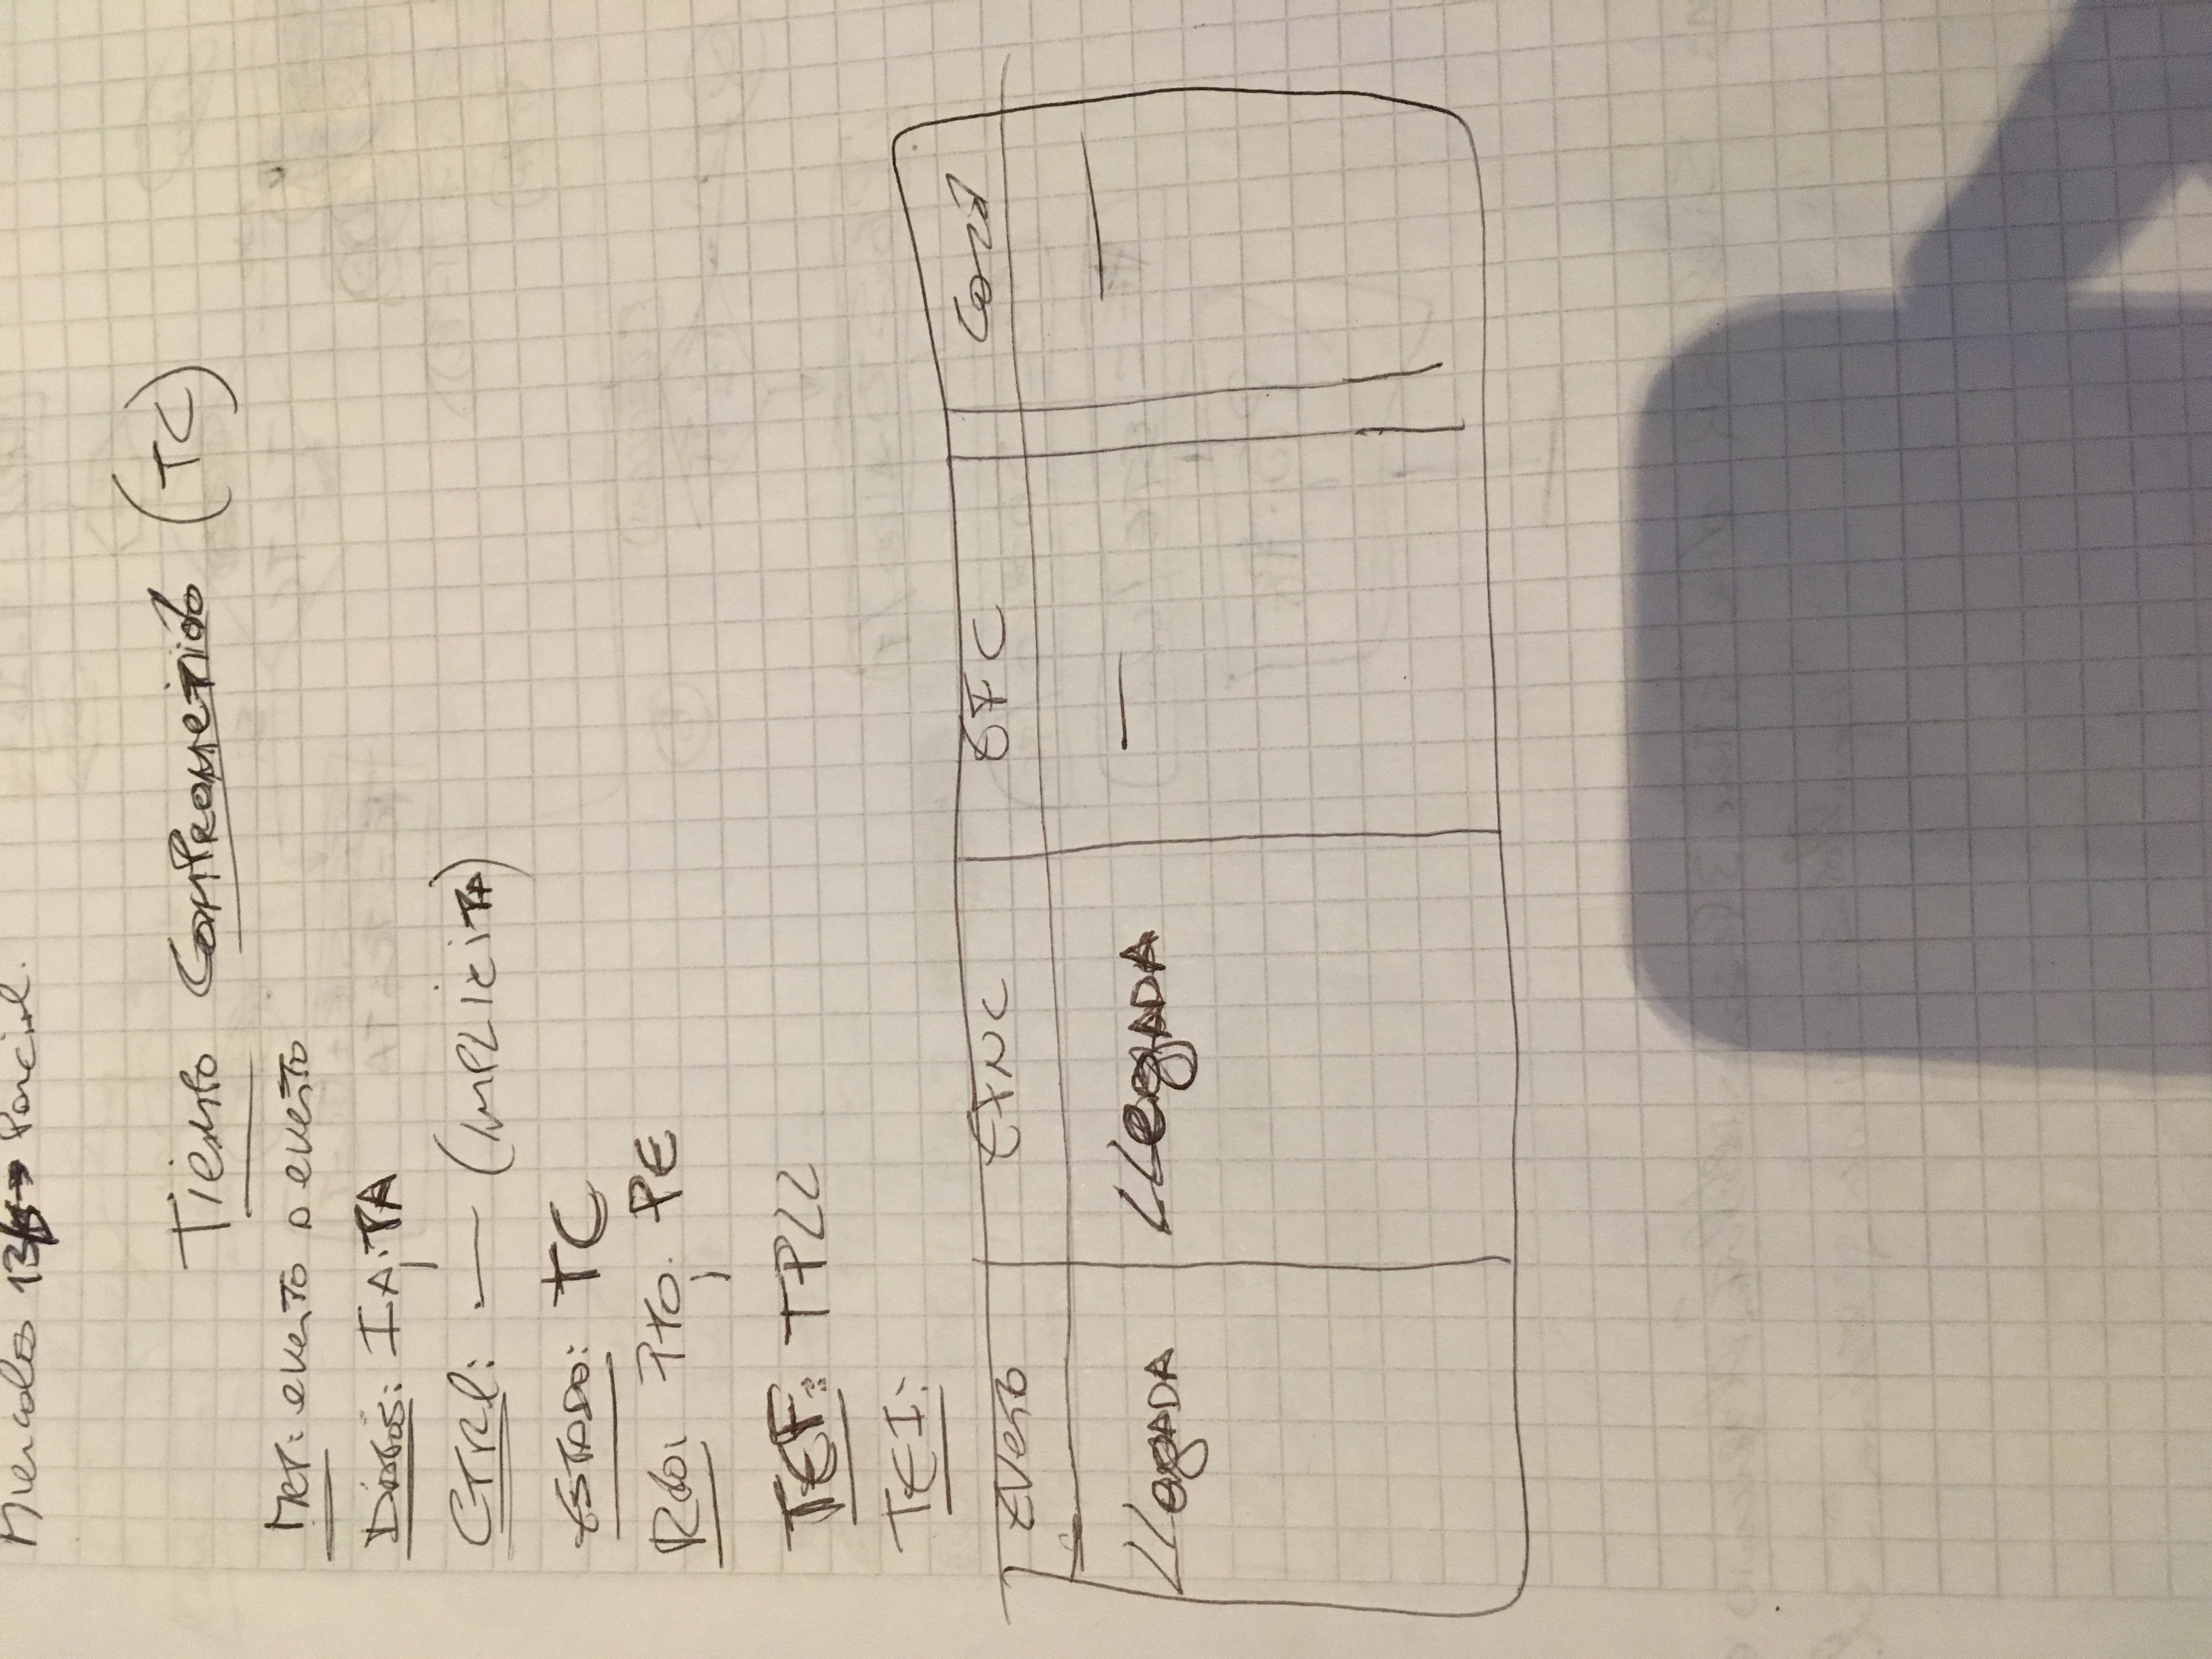 Miercoles 13/5 → Parcial.
Tiempo Comprometido (TC)
Met: evento a evento
Datos: IA; TA
CTRl: — (implicita)
Estado: TC
Rdo: Pto; PE
TEF: TPLL
TEI:
Evento EFNC EFC Cond
Llegada Llegada — —